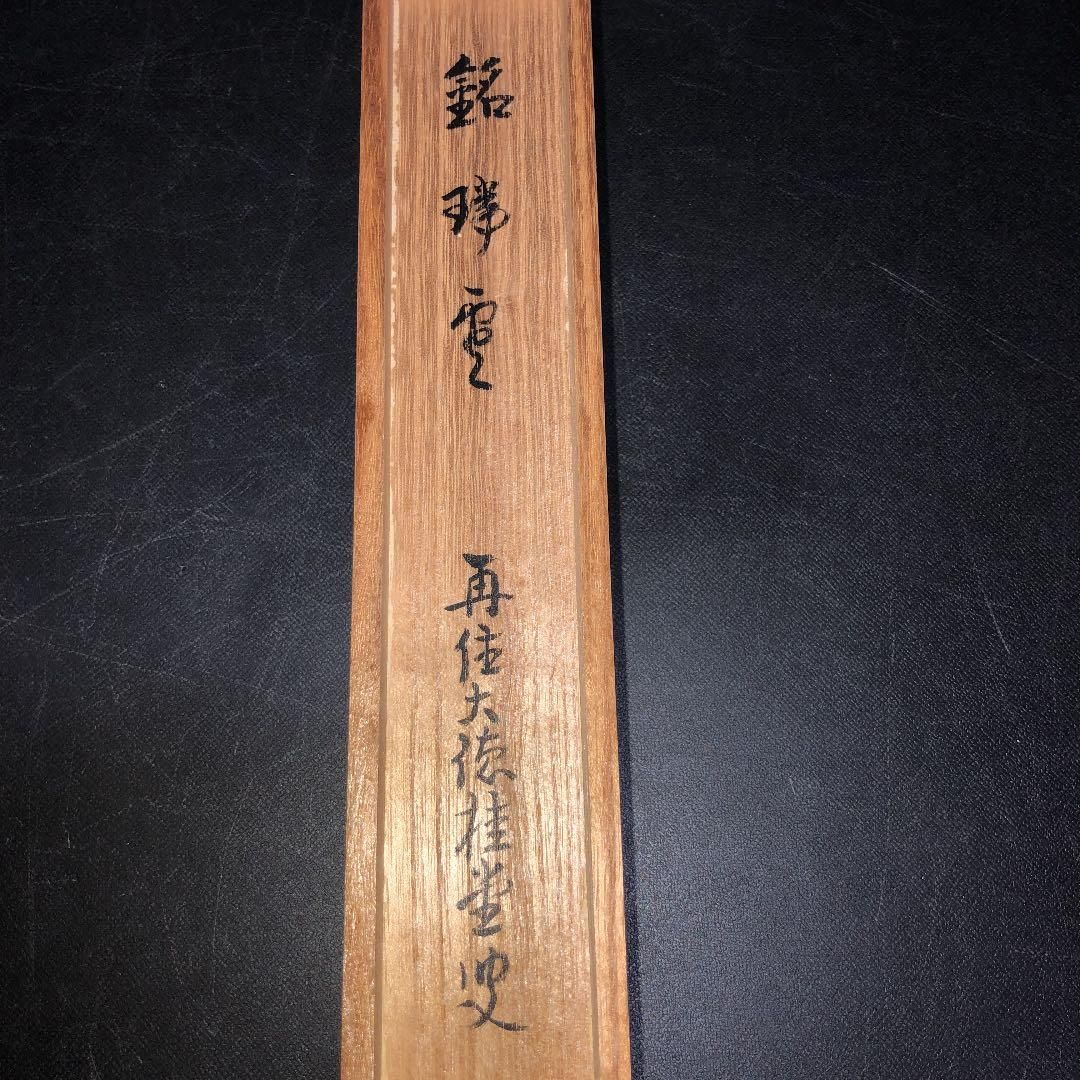 銘 瑞雲
再住大徳桂堂叟